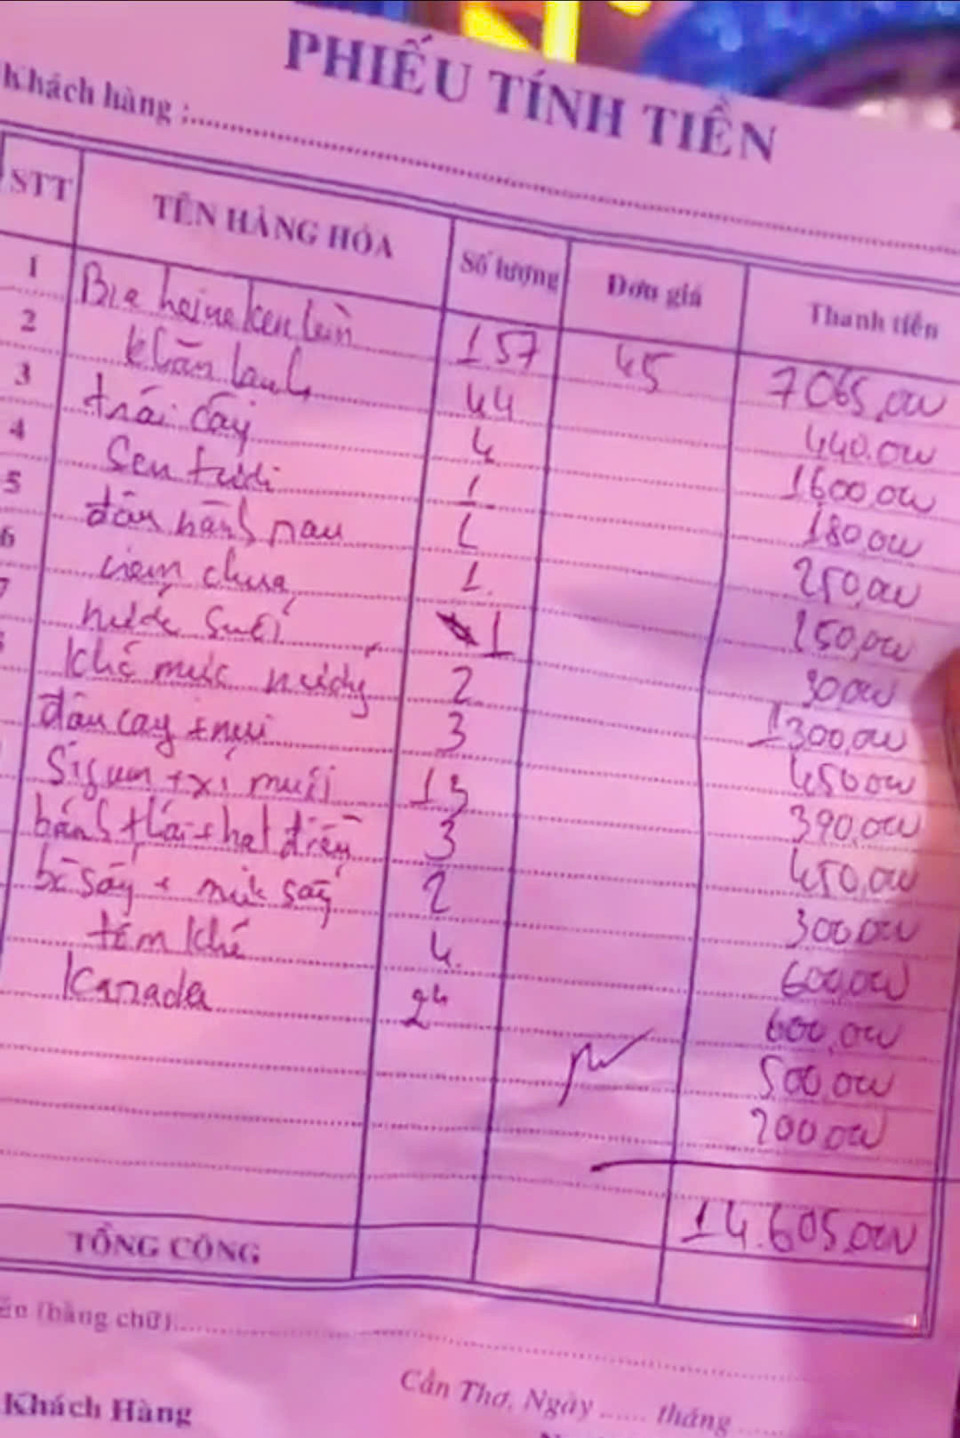 PHIẾU TÍNH TIỀN
Khách hàng :
STT TÊN HÀNG HÓA Số lượng Đơn giá Thanh tiền
1 Bia heineken lùn 157 45 7065.000
2 khăn lạnh 44 440.000
3 trái cây 4 1600.000
4 Sen tươi 1 180.000
5 đậu hành nau 1 250,000
6 nem chua 1. 150,000
7 nước suối 1 30000
khô mực nướng 2 1300,000
đậu cay + nui 3 450000
Sigum + xí muối 13 390,000
bánh thái + hạt điều 3 450,000
bò sấy + mực sấy 2 300000
tôm khô 4. 600,000
Kanada 24 600,000
500,000
200000
14.605.000
TỔNG CỘNG
(bằng chữ):
Cần Thơ, Ngày ...... tháng
Khách Hàng